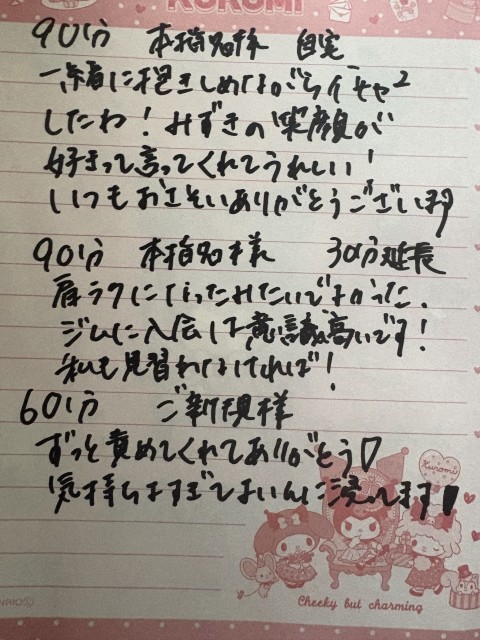 KUROMI
90分 本指名様 自宅
一緒に抱きしめながらイチャ²
したわ!みずきの笑顔が
好きって言ってくれてうれしい!
いつもおさそいありがとうございます
90分 本指名様 30分延長
肩ラクになったみたいでよかった.
ジムに入会は意識高いです!
私も見習わなければ!
60分 ご新規様
ずっと責めてくれてありがとう♡
気持ちよすぎてよいんに浸ってます!
Kuromi
Cheeky but charming